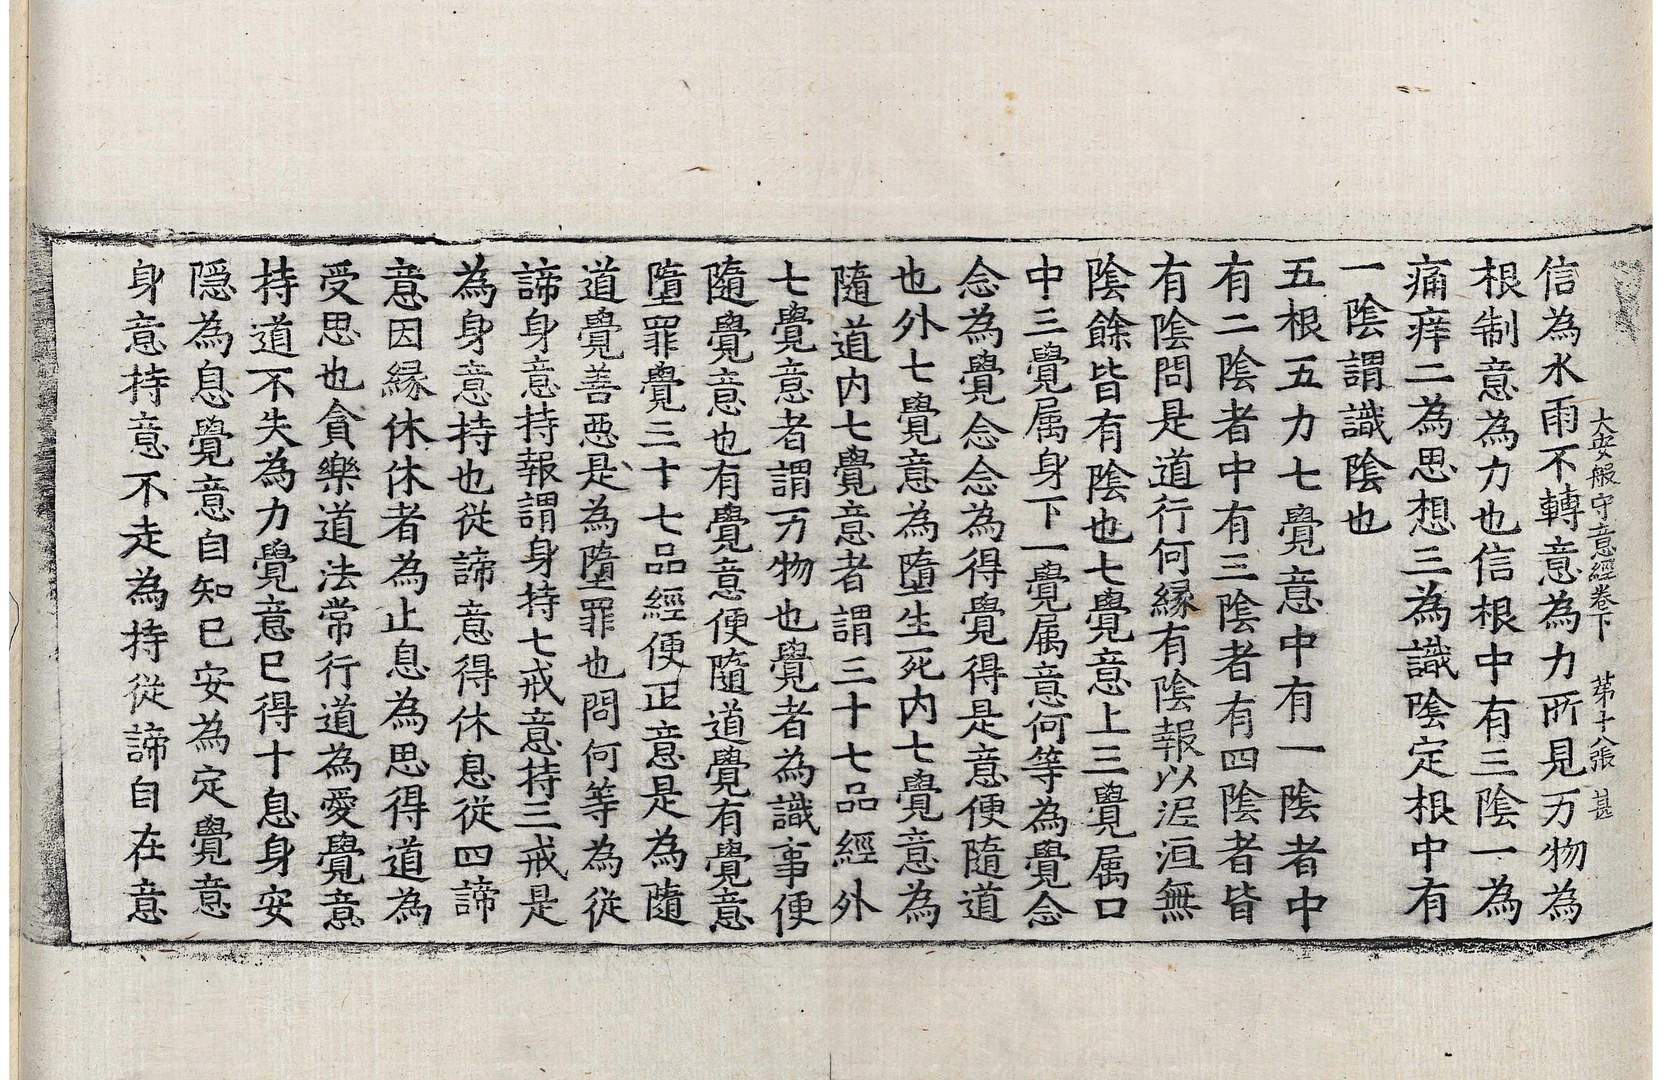 大安般守意經卷下 苐十八張 甚
信為水雨不轉意為力所見万物為
根制意為力也信根中有三陰一為
痛痒二為思想三為識陰定根中有
一陰謂識陰也
五根五力七覺意中有一陰者中
有二陰者中有三陰者有四陰者皆
有陰問是道行何縁有陰報以泥洹無
陰餘皆有陰也七覺意上三覺属口
中三覺属身下一覺属意何等為覺念
念為覺念念為得覺得是意便隨道
也外七覺意為墮生死内七覺意為
隨道内七覺意者謂三十七品經外
七覺意者謂万物也覺者為識事便
隨覺意也有覺意便隨道覺有覺意
墮罪覺三十七品經便正意是為隨
道覺善惡是為墮罪也問何等為從
諦身意持報謂身持七戒意持三戒是
為身意持也從諦意得休息從四諦
意因縁休休者為止息為思得道為
受思也貪樂道法常行道為愛覺意
持道不失為力覺意已得十息身安
隱為息覺意自知已安為定覺意
身意持意不走為持從諦自在意